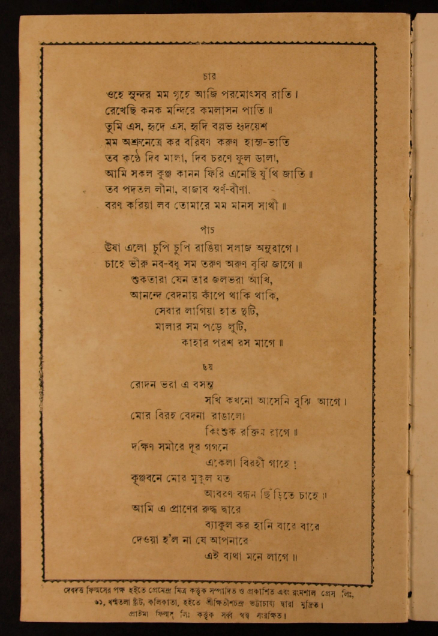 চার
ওহে সুন্দর মম গৃহে আজি পরমোৎসব রাতি।
রেখেছি কনক মন্দিরে কমলাসন পাতি॥
তুমি এস, হৃদে এস, হৃদি বল্লভ হৃদয়েশ
মম অশ্রুনেত্রে কর বরিষণ করুণ হাস্য-ভাতি
তব কণ্ঠে দিব মালা, দিব চরণে ফুল ডালা,
আমি সকল কুঞ্জ কানন ফিরি এনেছি যুঁথি জাতি॥
তব পদতল লীনা, বাজাব স্বর্ণ-বীণা.
বরণ করিয়া লব তোমারে মম মানস সাথী॥
পাঁচ
ঊষা এলো চুপি চুপি রাঙিয়া সলাজ অনুরাগে।
চাহে ভীরু নব-বধু সম তরুণ অরুণ বুঝি জাগে॥
শুকতারা যেন তার জলভরা আখি,
আনন্দে বেদনায় কাঁপে থাকি থাকি,
সেবার লাগিয়া হাত দুটি,
মালার সম পড়ে লুটি,
কাহার পরশ রস মাগে॥
ছয়
রোদন ভরা এ বসন্ত
সখি কখনো আসেনি বুঝি আগে।
মোর বিরহ বেদনা রাঙালো
কিংশুক রক্তিম রাগে॥
দক্ষিণ সমীরে দূর গগনে
একেলা বিরহী গাহে!
কুঞ্জবনে মোর মুকুল যত
আবরণ বন্ধন ছিঁড়িতে চাহে॥
আমি এ প্রাণের রুদ্ধ দ্বারে
ব্যাকুল কর হানি বারে বারে
দেওয়া হ'ল না যে আপনারে
এই ব্যথা মনে লাগে॥
দেবদত্ত ফিল্মসের পক্ষ হইতে প্রেমেন্দ্র মিত্র কর্ত্তৃক সম্পাদিত ও প্রকাশিত এবং
ধর্ম্মতলা ষ্ট্রীট, কলিকাতা, হইতে শ্রীক্ষিতীশচন্দ্র ভট্টাচার্য্য দ্বারা মুদ্রিত।
প্রাইমা ফিল্মস্ লিঃ কর্ত্তৃক সর্ব্ব স্বত্ব সংরক্ষিত।